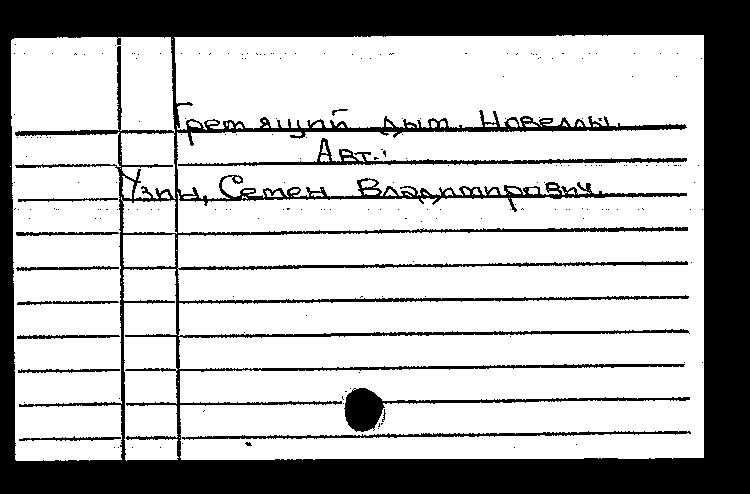 Гремящий дым. Новеллы.
Авт.:
Узин, Семен Владимирович.